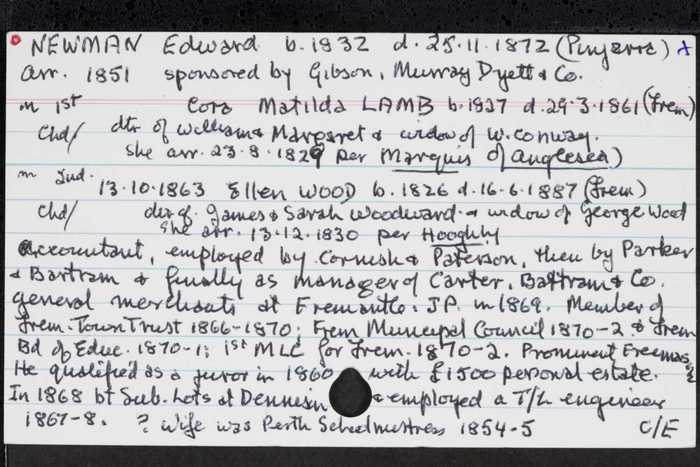 NEWMAN Edward b. 1832 d. 25.11.1872 (Pinjarra) x
arr. 1851 sponsored by Gibson, Murray Dyett & Co.
m 1st Cora Matilda LAMB b. 1827 d. 29.3.1861 (Frem)
Chd/ dtr of William & Margaret & widow of W. Conway.
She arr. 23.8.1829 per Marquis of Anglesea)
m 2nd.
13.10.1863 Ellen WOOD b. 1826 d. 16.6.1887 (Frem)
Chd/ dtr of. James & Sarah Woodward & widow of George Wood
She arr. 13.12.1830 per Hooghly
Accountant, employed by Cornish & Paterson, then by Parker
& Bartram & finally as manager of Carter, Bartram & Co.
general merchants at Fremantle. JP. in 1869. Member of
Frem. Town Trust 1866-1870; Frem Municipal Council 1870-2 & Frem
Bd of Educ. 1870-1; 1st MLC for Frem. 1870-2. Prominent Freemas
He qualified as a juror in 1860 with £1500 personal estate.
In 1868 bt Sub. Lots at Dennison & employed a T/L engineer
1867-8. ? Wife was Perth Schoolmistress 1854-5 C/E